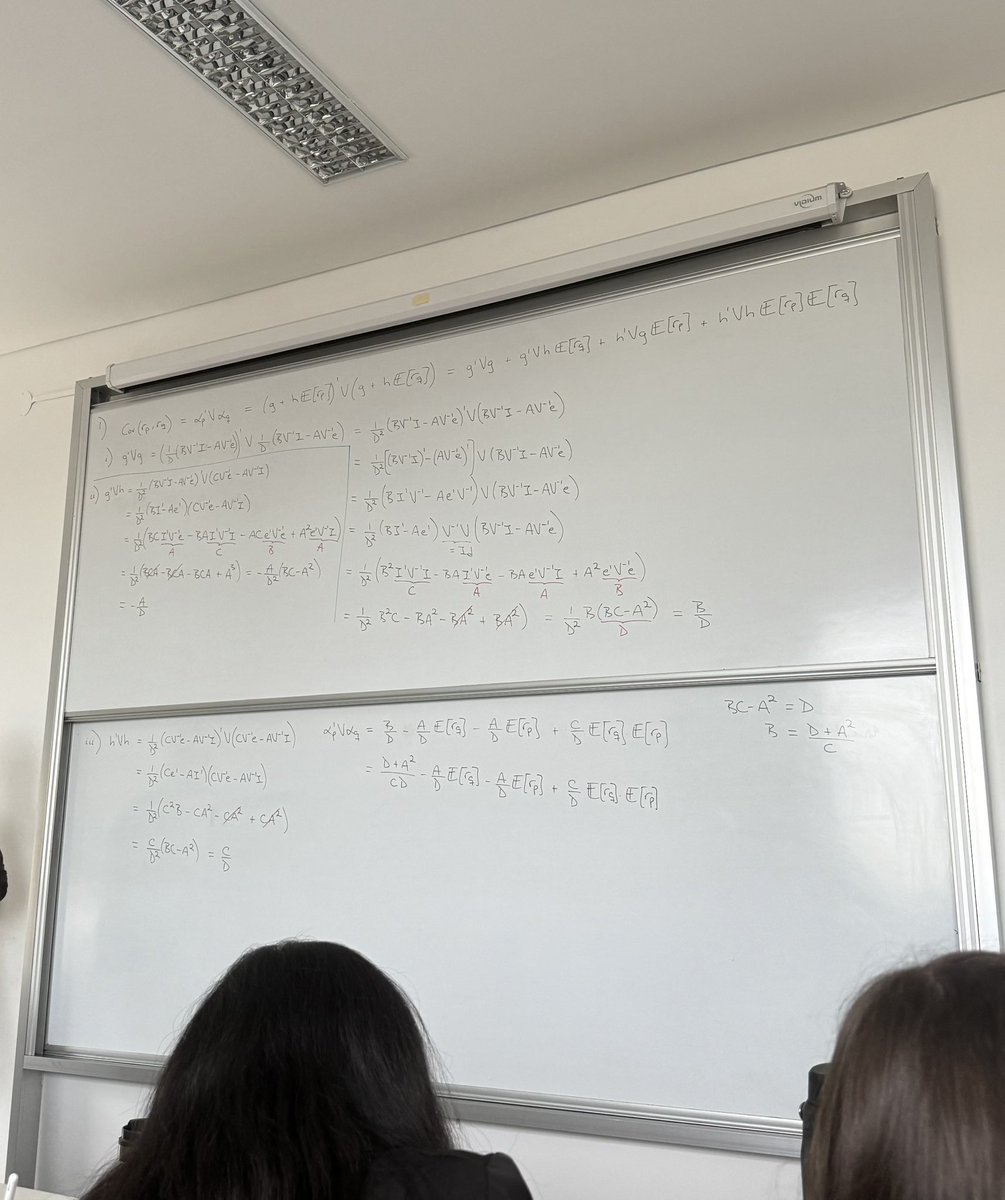 vidium
1) Cov(rₚ, r_q) = αₚ'Vα_q = (g + hE[rₚ])'V(g + hE[r_q]) = g'Vg + g'VhE[r_q] + h'VgE[rₚ] + h'VhE[rₚ]E[r_q]
i.) g'Vg = (1/D(BV⁻¹I - AV⁻¹e))'V 1/D(BV⁻¹I - AV⁻¹e) = 1/D²(BV⁻¹I - AV⁻¹e)'V(BV⁻¹I - AV⁻¹e)
= 1/D²[(BV⁻¹I)' - (AV⁻¹e)']V(BV⁻¹I - AV⁻¹e)
= 1/D²(BI'V⁻¹ - Ae'V⁻¹)V(BV⁻¹I - AV⁻¹e)
= 1/D²(BI' - Ae')V⁻¹V(BV⁻¹I - AV⁻¹e)
= Id
= 1/D²(B²I'V⁻¹I - BAI'V⁻¹e - BAe'V⁻¹I + A²e'V⁻¹e)
C A A B
= 1/D² B²C - BA² - BA² + BA²) = 1/D² B(BC-A²) = B/D
D
ii) g'Vh = 1/D²(BV⁻¹I - AV⁻¹e)'V(CV⁻¹e - AV⁻¹I)
= 1/D²(BI' - Ae')(CV⁻¹e - AV⁻¹I)
= 1/D²(BCI'V⁻¹e - BAI'V⁻¹I - ACe'V⁻¹e + A²e'V⁻¹I)
A C B A
= 1/D²(BCA - BCA - BCA + A³) = -A/D²(BC-A²)
= -A/D
iii) h'Vh = 1/D²(CV⁻¹e - AV⁻¹I)'V(CV⁻¹e - AV⁻¹I)
= 1/D²(Ce' - AI')(CV⁻¹e - AV⁻¹I)
= 1/D²(C²B - CA² - CA² + CA²)
= C/D²(BC-A²) = C/D
αₚ'Vα_q = B/D - A/D E[r_q] - A/D E[rₚ] + C/D E[r_q] E[rₚ]
= D+A²/CD - A/D E[r_q] - A/D E[rₚ] + C/D E[r_q]·E[rₚ]
BC-A² = D
B = D+A²/C